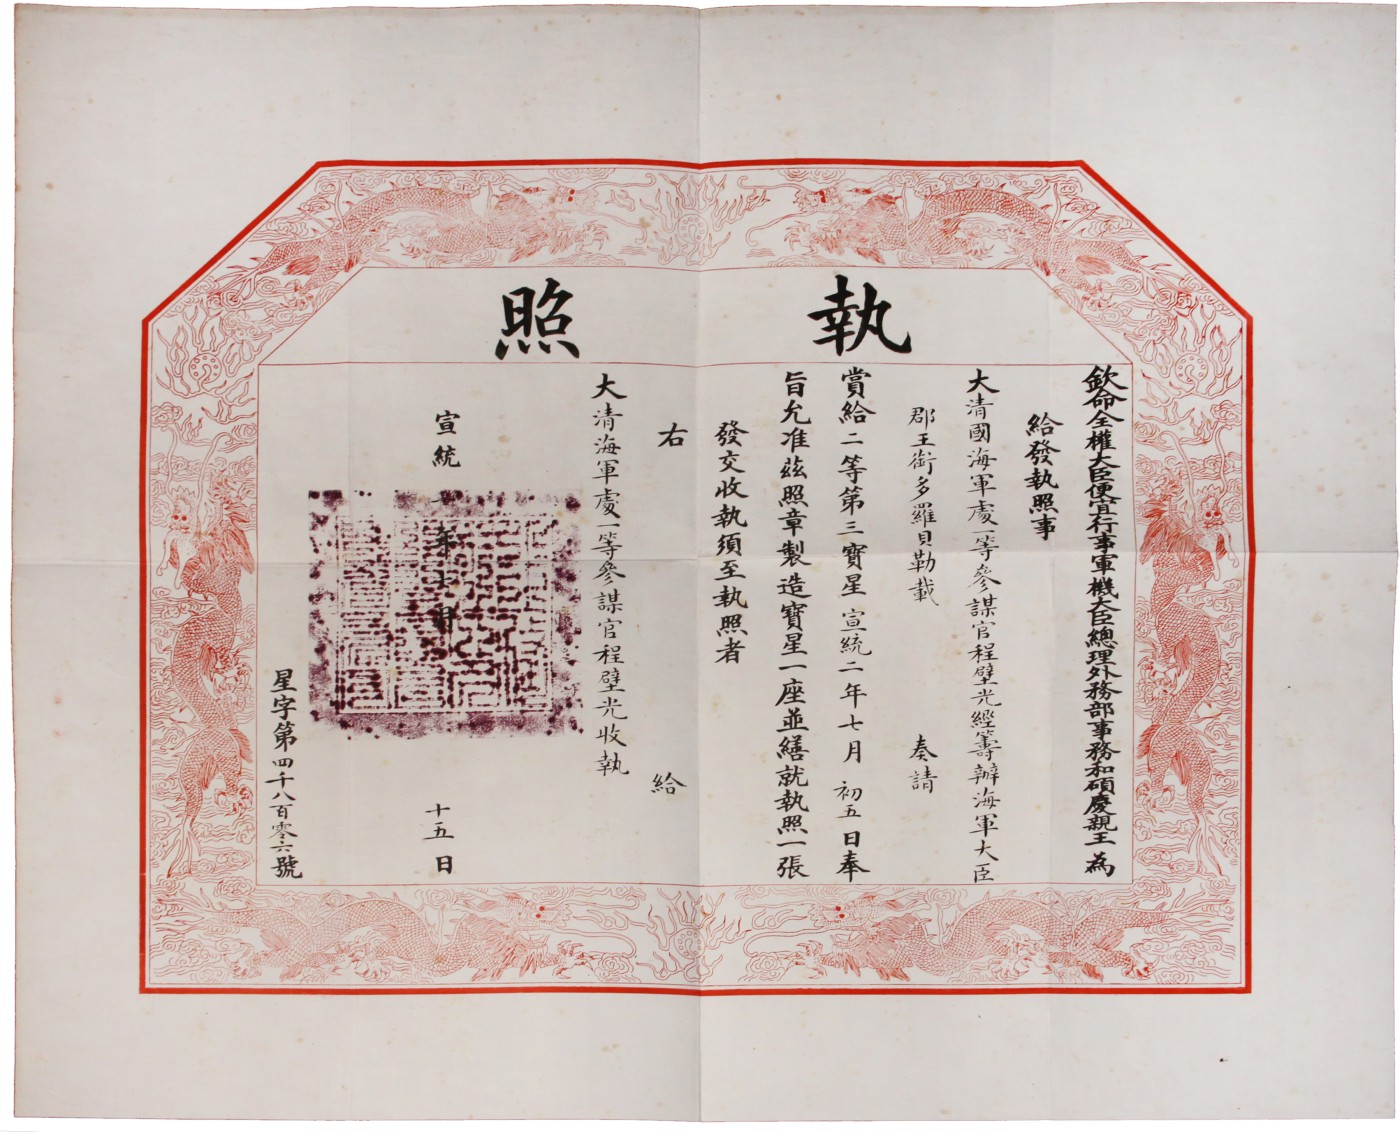 執照
欽命全權大臣便宜行事軍機大臣總理外務部事務和碩慶親王為
給發執照事
大清國海軍處一等參謀官程璧光經籌辦海軍大臣
郡王銜多羅貝勒載 奏請
賞給二等第三寶星宣統二年七月初五日奉
旨允准茲照章製造寶星一座並繕就執照一張
發交收執須至執照者
右 給
大清海軍處一等參謀官程璧光收執
宣統 年 月 十五日
星字第四千八百零六號